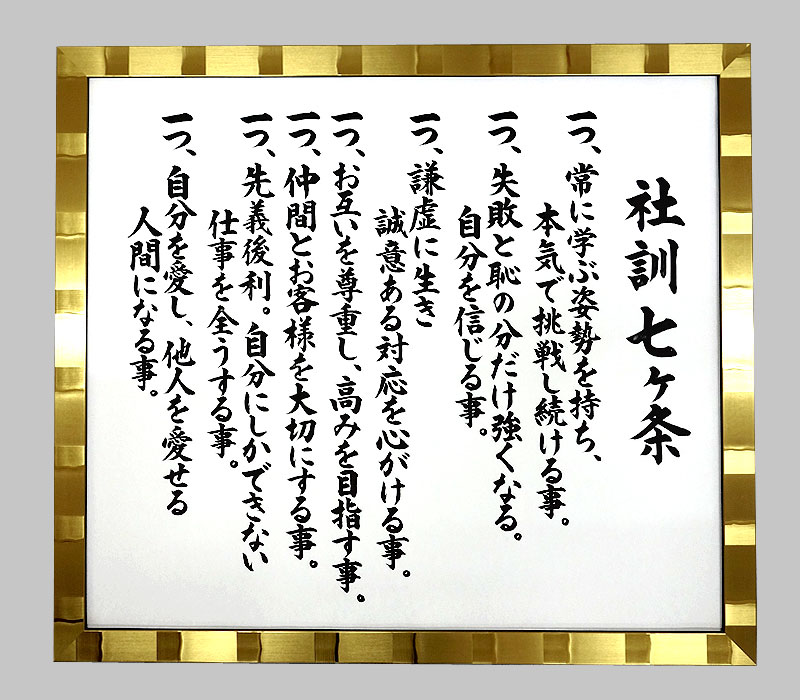 社訓 七ヶ条
一つ、常に学ぶ姿勢を持ち、
本気で挑戦し続ける事。
一つ、失敗と恥の分だけ強くなる。
自分を信じる事。
一つ、謙虚に生き
誠意ある対応を心がける事。
一つ、お互いを尊重し、高みを目指す事。
一つ、仲間とお客様を大切にする事。
一つ、先義後利。自分にしかできない
仕事を全うする事。
一つ、自分を愛し、他人を愛せる
人間になる事。